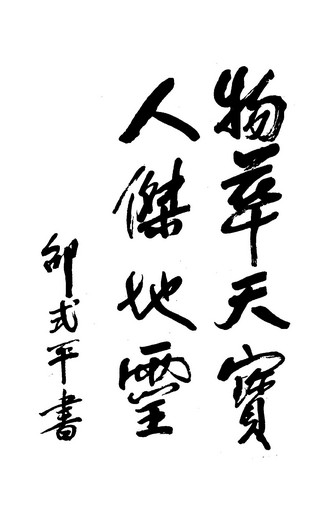 物華天寶
人傑地靈
邵式平書